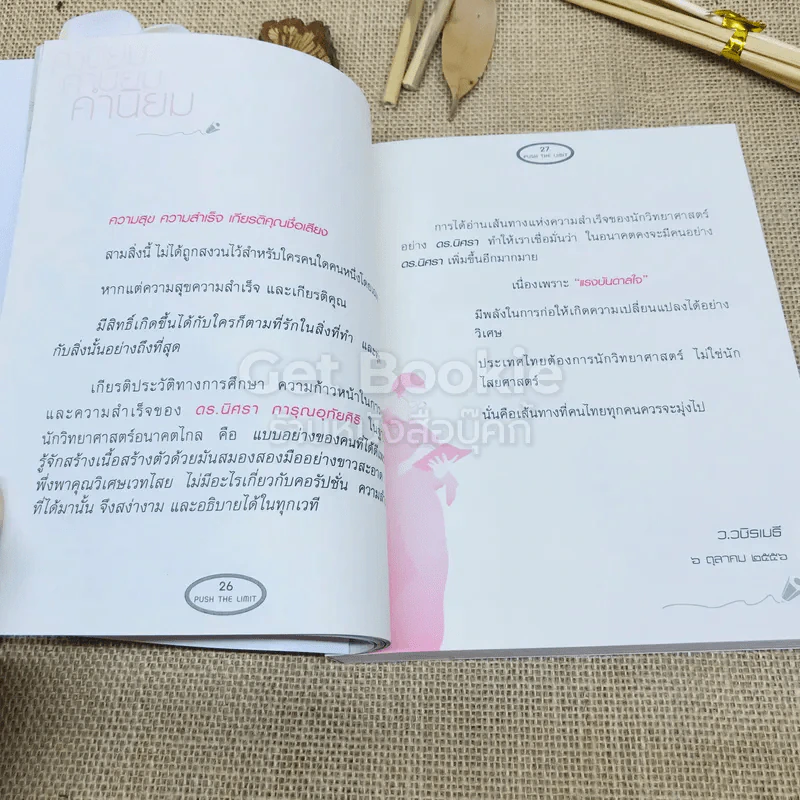 คำนิยม
ความสุข ความสำเร็จ เกียรติคุณชื่อเสียง
สามสิ่งนี้ ไม่ได้ถูกสงวนไว้สำหรับใครคนใดคนหนึ่ง
หากแต่ความสุขความสำเร็จ และเกียรติคุณ
มีสิทธิ์เกิดขึ้นได้กับใครก็ตามที่รักในสิ่งที่ทำ และ
กับสิ่งนั้นอย่างถึงที่สุด
เกียรติประวัติทางการศึกษา ความก้าวหน้าใน
และความสำเร็จของ ดร.นิศรา การุณอุทัยศิริ ใน
นักวิทยาศาสตร์อนาคตไกล คือ แบบอย่างของคนที่ได้ดี
รู้จักสร้างเนื้อสร้างตัวด้วยมันสมองสองมืออย่างขาวสะอาด
พึ่งพาคุณวิเศษเวทไสย ไม่มีอะไรเกี่ยวกับคอรัปชั่น
ที่ได้มานั้น จึงสง่างาม และอธิบายได้ในทุกเวที
26
PUSH THE LIMIT
27
PUSH THE LIMIT
การได้อ่านเส้นทางแห่งความสำเร็จของนักวิทยาศาสตร์
อย่าง ดร.นิศรา ทำให้เราเชื่อมั่นว่า ในอนาคตคงจะมีคนอย่าง
ดร.นิศรา เพิ่มขึ้นอีกมากมาย
เนื่องเพราะ "แรงบันดาลใจ"
มีพลังในการก่อให้เกิดความเปลี่ยนแปลงได้อย่าง
วิเศษ
ประเทศไทยต้องการนักวิทยาศาสตร์ ไม่ใช่นัก
ไสยศาสตร์
นั่นคือเส้นทางที่คนไทยทุกคนควรจะมุ่งไป
ว.วชิรเมธี
๖ ตุลาคม ๒๕๕๖
Get Bookie
ร้านหนังสือบุ๊คกี้